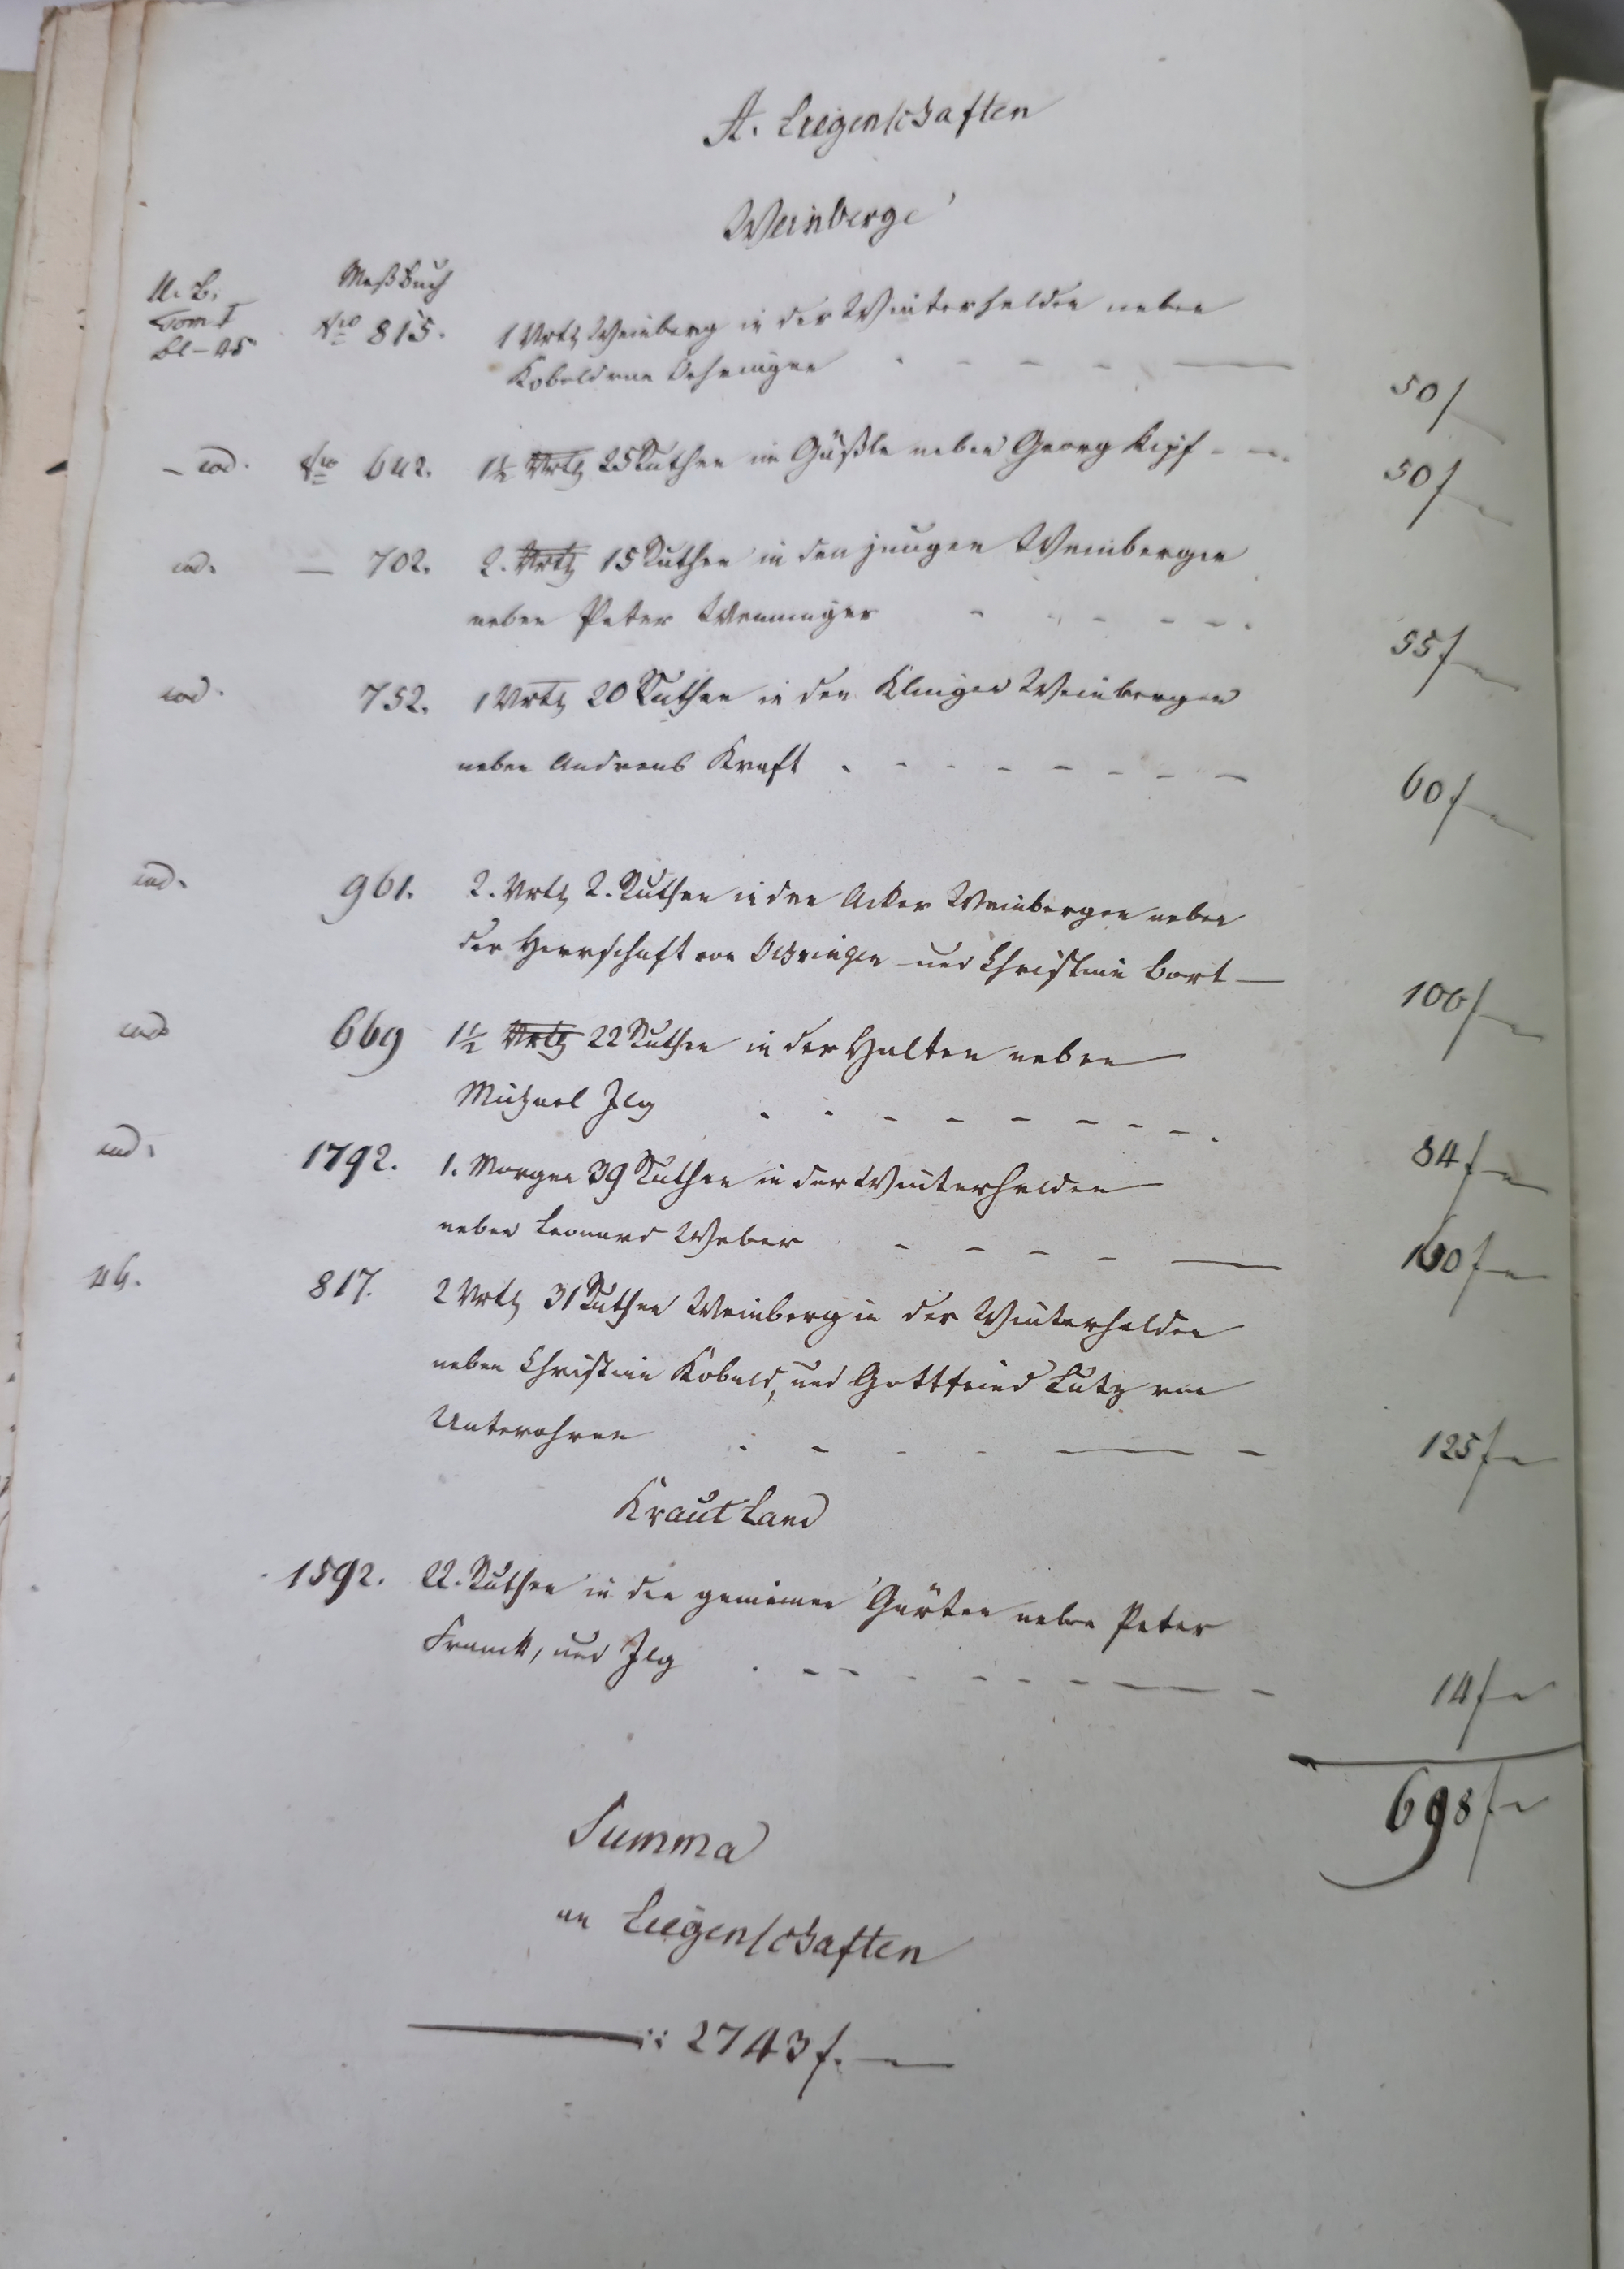 A. Liegenschaften
Weinberge
U. B. Meßbuch
Tom I Nro 815. 1 Vrtl Weinberg in der Winterhalden neben
Bl - 45 Kobold von Oehringen - - - - 50 f
- eod. Nro 642. 1½ Vrtl 25 Ruthen im Gäßle neben Georg Kipf - - 50 f
eod. — 702. 2. Vrtl 15 Ruthen in den jungen Weinbergen
neben Peter Wenninger - - - - - 55 f
eod. 752. 1 Vrtl 20 Ruthen in den Klingen Weinbergen
neben Andreas Kraft . - - - - - - - 60 f
eod. 961. 2. Vrtl 2. Ruthen in den Acker Weinbergen neben
der Herrschaft von Oehringen und Christine Bort — 100 f
eod 669 1½ Vrtl 22 Ruthen in der Halten neben
Michael Ilg . - - - - - - - 84 f
eod. 1792. 1. Morgen 39 Ruthen in der Winterhalden
neben Leonard Weber - - - - — f
46. 817. 2 Vrtl 31 Ruthen Weinberg in der Winterhalden
neben Christine Kobold, und Gottfried Lutz von
Unterohrn . - - - — - 125 f
Krautland
1592. 22. Ruthen in den gemeinen Gärten neben Peter
Franck, und Ilg . - - - - - - — - 14 f
698 f
Summa
an Liegenschaften
— :: 2743 f. —